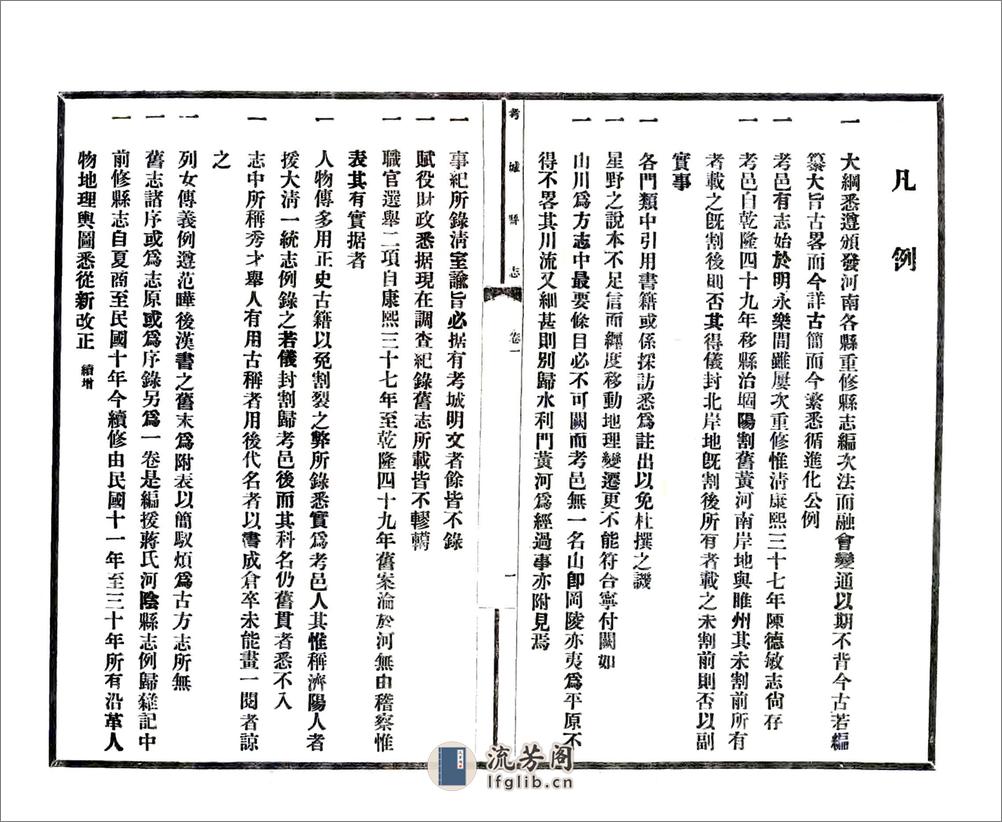 凡例
一 大綱悉遵頒發河南各縣重修縣志編次法而融會變通以期不背今古若編
纂大旨古畧而今詳古簡而今繁悉循進化公例
一 考邑有志始於明永樂間雖屢次重修惟淸康熙三十七年陳德敏志尙存
考邑自乾隆四十九年移縣治堌陽割舊黃河南岸地與睢州其未割前所有
者載之旣割後則否其得儀封北岸地旣割後所有者載之未割前則否以副
實事
一 各門類中引用書籍或係採訪悉爲註出以免杜撰之譏
一 星野之說本不足信而經度移動地理變遷更不能符合寧付闕如
一 山川爲方志中最要條目必不可闕而考邑無一名山卽岡陵亦夷爲平原不
得不畧其川流又細甚則別歸水利門黃河爲經過事亦附見焉
考城縣志
卷一
一
一 事紀所錄淸室諭旨必据有考城明文者餘皆不錄
一 賦役財政悉据現在調查紀錄舊志所載皆不轇轕
一 職官選舉二項自康熙三十七年至乾隆四十九年舊案淪於河無由稽察惟
表其有實据者
一 人物傳多用正史古籍以免割裂之弊所錄悉實爲考邑人其惟稱濟陽人者
援大淸一統志例錄之若儀封割歸考邑後而其科名仍舊貫者悉不入
一 志中所稱秀才舉人有用古稱者用後代名者以書成倉卒未能畫一閱者諒
之
一 列女傳義例遵范曄後漢書之舊末爲附表以簡馭煩爲古方志所無
一 舊志諸序或爲志原或爲序錄另爲一卷是編援蔣氏河陰縣志例歸雜記中
一 前修縣志自夏商至民國十年今續修由民國十一年至三十年所有沿革人
物地理輿圖悉從新改正 續增
流芳阁
lfglib.cn